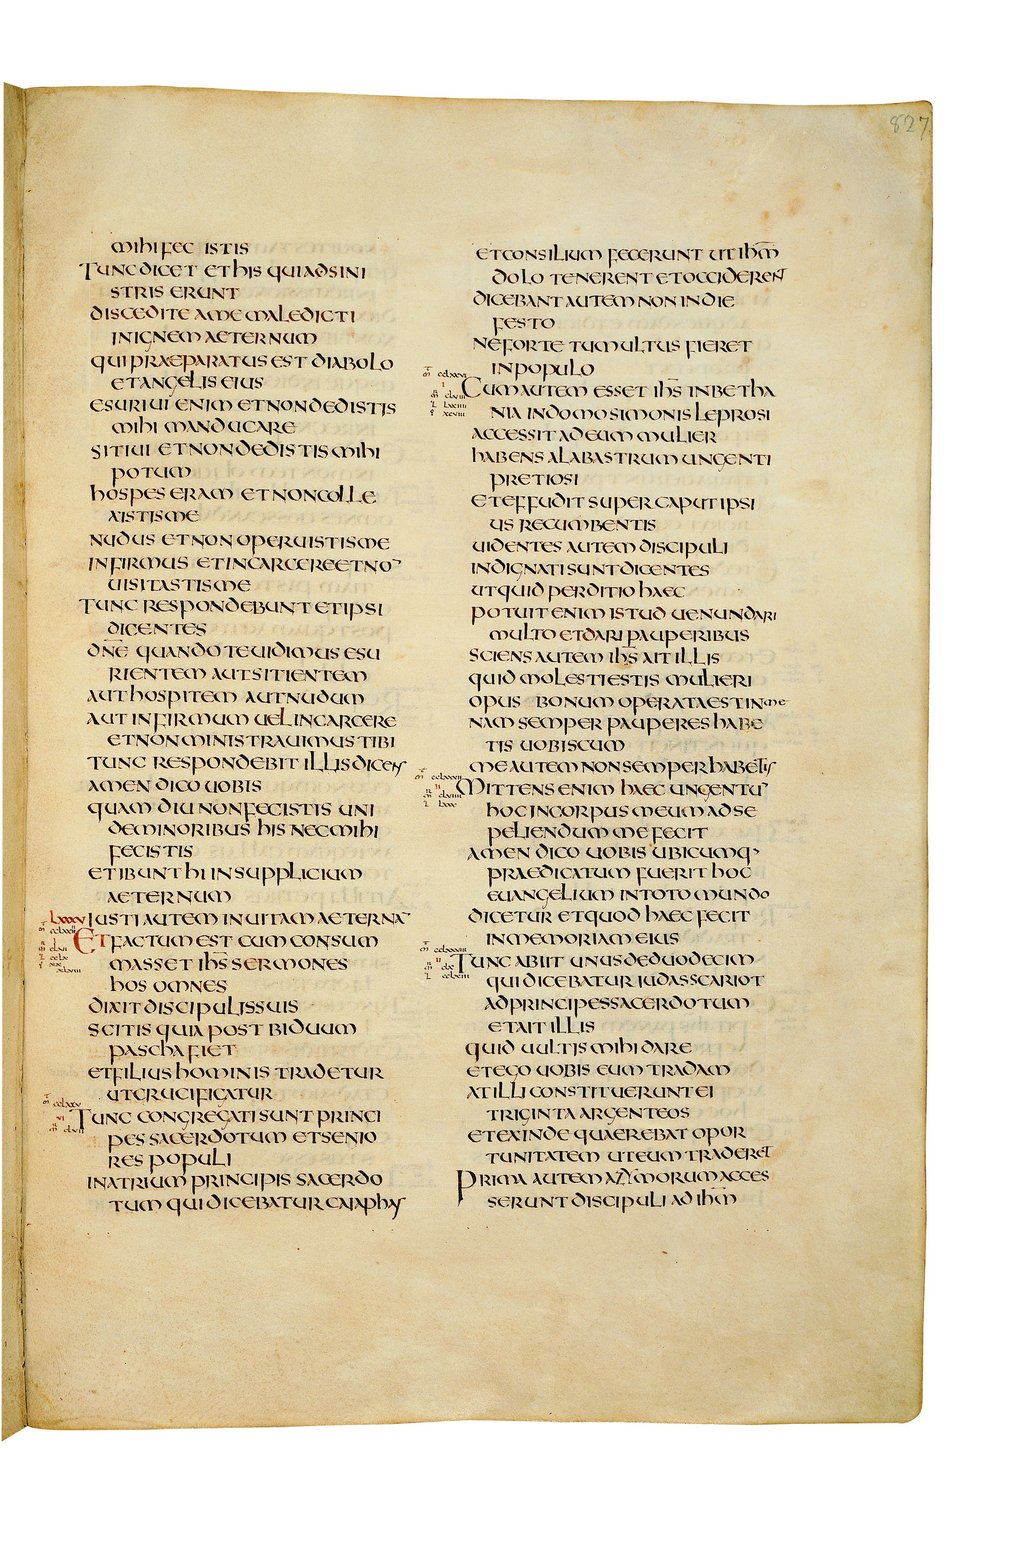 827
mihi fecistis
Tunc dicet et his qui ad sini
stris erunt
discedite a me maledicti
in ignem aeternum
qui praeparatus est diabolo
et angelis eius
esuriui enim et non dedistis
mihi manducare
sitiui et non dedistis mihi
potum
hospes eram et non colle
xistis me
nudus et non operuistis me
infirmus et in carcere et no¯
uisitastis me
Tunc respondebunt et ipsi
dicentes
dn̄e quando te uidimus esu
rientem aut sitientem
aut hospitem aut nudum
aut infirmum uel in carcere
et non ministrauimus tibi
Tunc respondebit illis dicens
amen dico uobis
quamdiu non fecistis uni
de minoribus his nec mihi
fecistis
et ibunt hi in supplicium
aeternum
lxxxv iusti autem in uitam aeterna¯
Et factum est cum consum
masset ihs̄ sermones
hos omnes
dixit discipulis suis
scitis quia post biduum
pascha fiet
et filius hominis tradetur
ut crucifigatur
cclxxv
Tunc congregati sunt princi
pes sacerdotum et senio
res populi
in atrium principis sacerdo
tum qui dicebatur caiaphas
et consilium fecerunt ut ihm̄
dolo tenerent et occiderent
dicebant autem non in die
festo
ne forte tumultus fieret
in populo
cclxxvi
Cum autem esset ihs̄ in betha
nia in domo simonis leprosi
accessit ad eum mulier
habens alabastrum ungenti
pretiosi
et effudit super caput ipsi
us recumbentis
uidentes autem discipuli
indignati sunt dicentes
ut quid perditio haec
potuit enim istud uenundari
multo et dari pauperibus
sciens autem ihs̄ ait illis
quid molesti estis mulieri
opus bonum operata est in me
nam semper pauperes habe
tis uobiscum
me autem non semper habetis
cclxxvii
Mittens enim haec ungentu¯
hoc in corpus meum ad se
peliendum me fecit
amen dico uobis ubicumq·
praedicatum fuerit hoc
euangelium in toto mundo
dicetur et quod haec fecit
in memoriam eius
cclxxviii
Tunc abiit unus de duodecim
qui dicebatur iudas scariot
ad principes sacerdotum
et ait illis
quid uultis mihi dare
et ego uobis eum tradam
at illi constituerunt ei
triginta argenteos
et exinde quaerebat opor
tunitatem ut eum traderet
Prima autem azymorum acces
serunt discipuli ad ihm̄